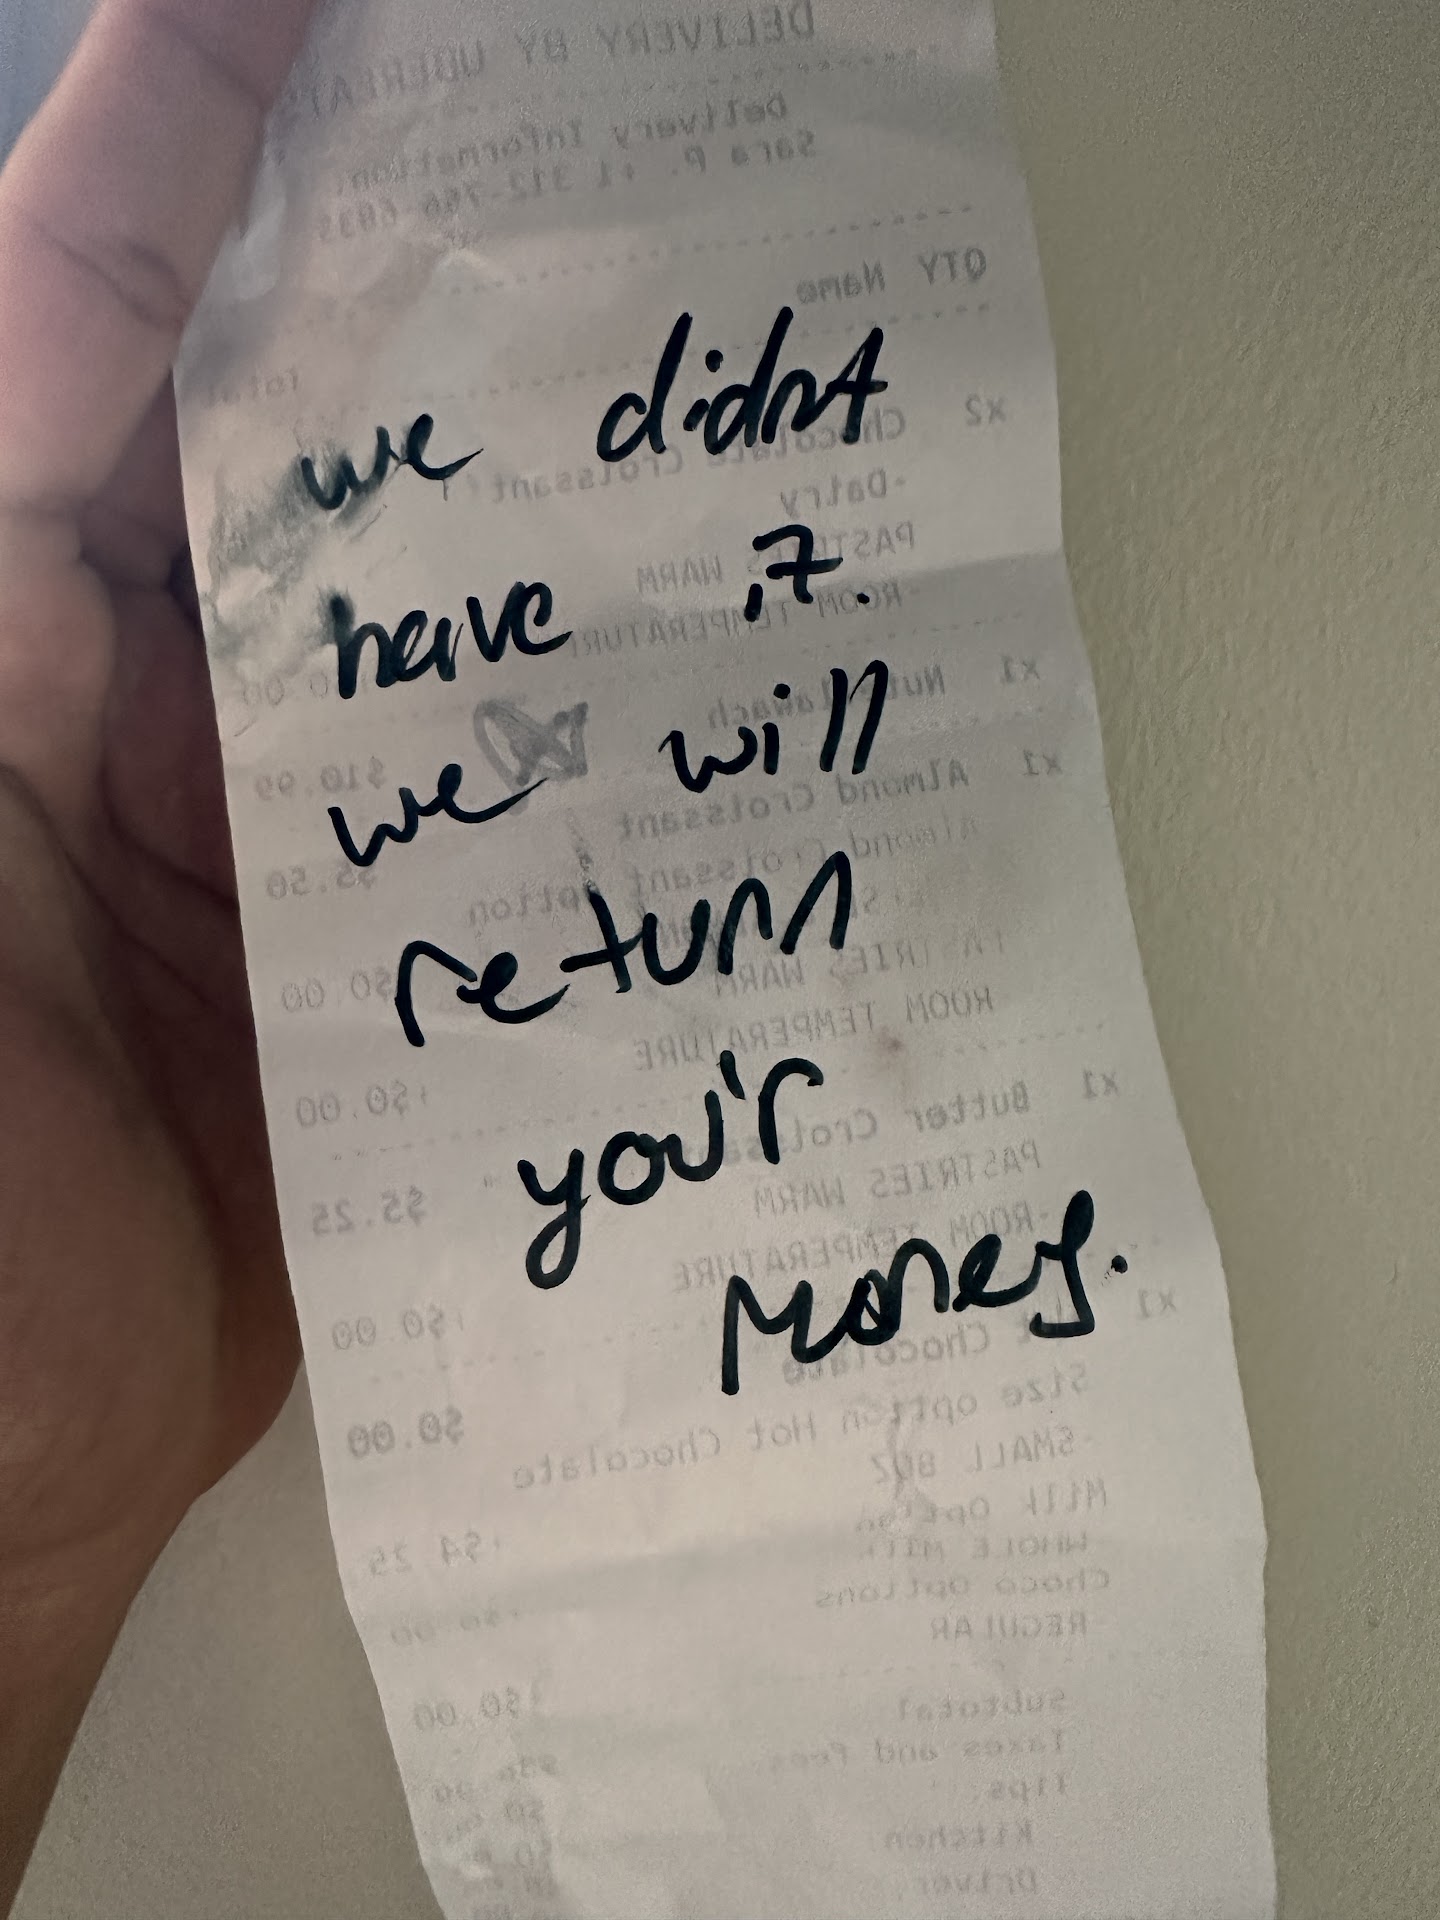 DELIVERY BY UBEREATS
Delivery Information:
Sara P. +1 312-766-6835
QTY Name
Total
we didnt
x2 Chocolate Croissant
-Dairy
PASTRIES WARM
have it.
-ROOM TEMPERATURE
we will
x1
$10.99
x1 Almond Croissant
Almond Croissant Option
$5.50
return
PASTRIES WARM
$0.00
ROOM TEMPERATURE
$0.00
you'r
x1 Butter Croissant
PASTRIES WARM
$5.25
-ROOM TEMPERATURE
money.
$0.00
x1 Chocolate
Size option Hot Chocolate
$0.00
-SMALL 8OZ
Milk Option
WHOLE MILK
+$4.25
Choco Options
REGULAR
Subtotal
+$0.00
Taxes and Fees
Tips
Kitchen
Driver